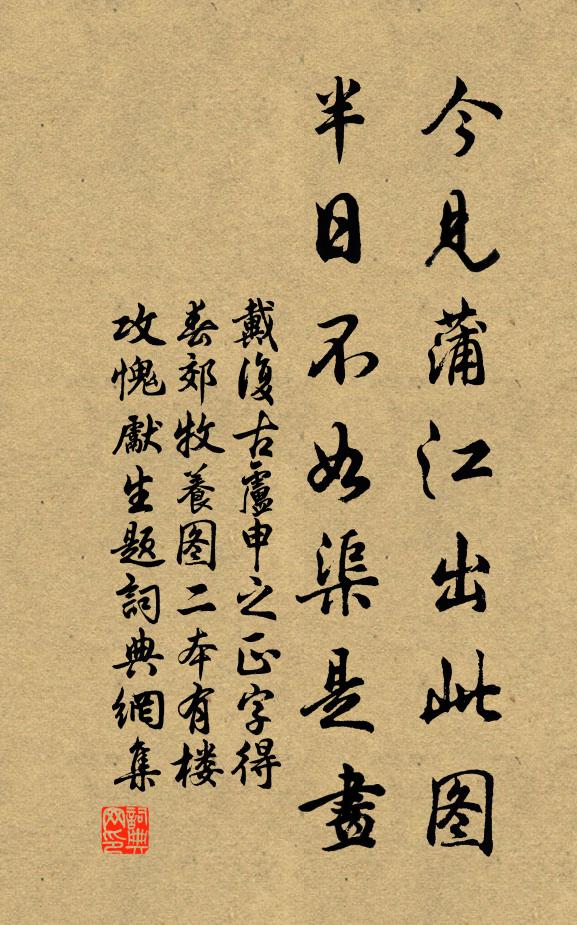 今見蒲江出此图
半日不如渠是畫
戴復古盧申之正字得
春郊牧養图二本有楼
攻愧獻生题詞典網集
詞典網印